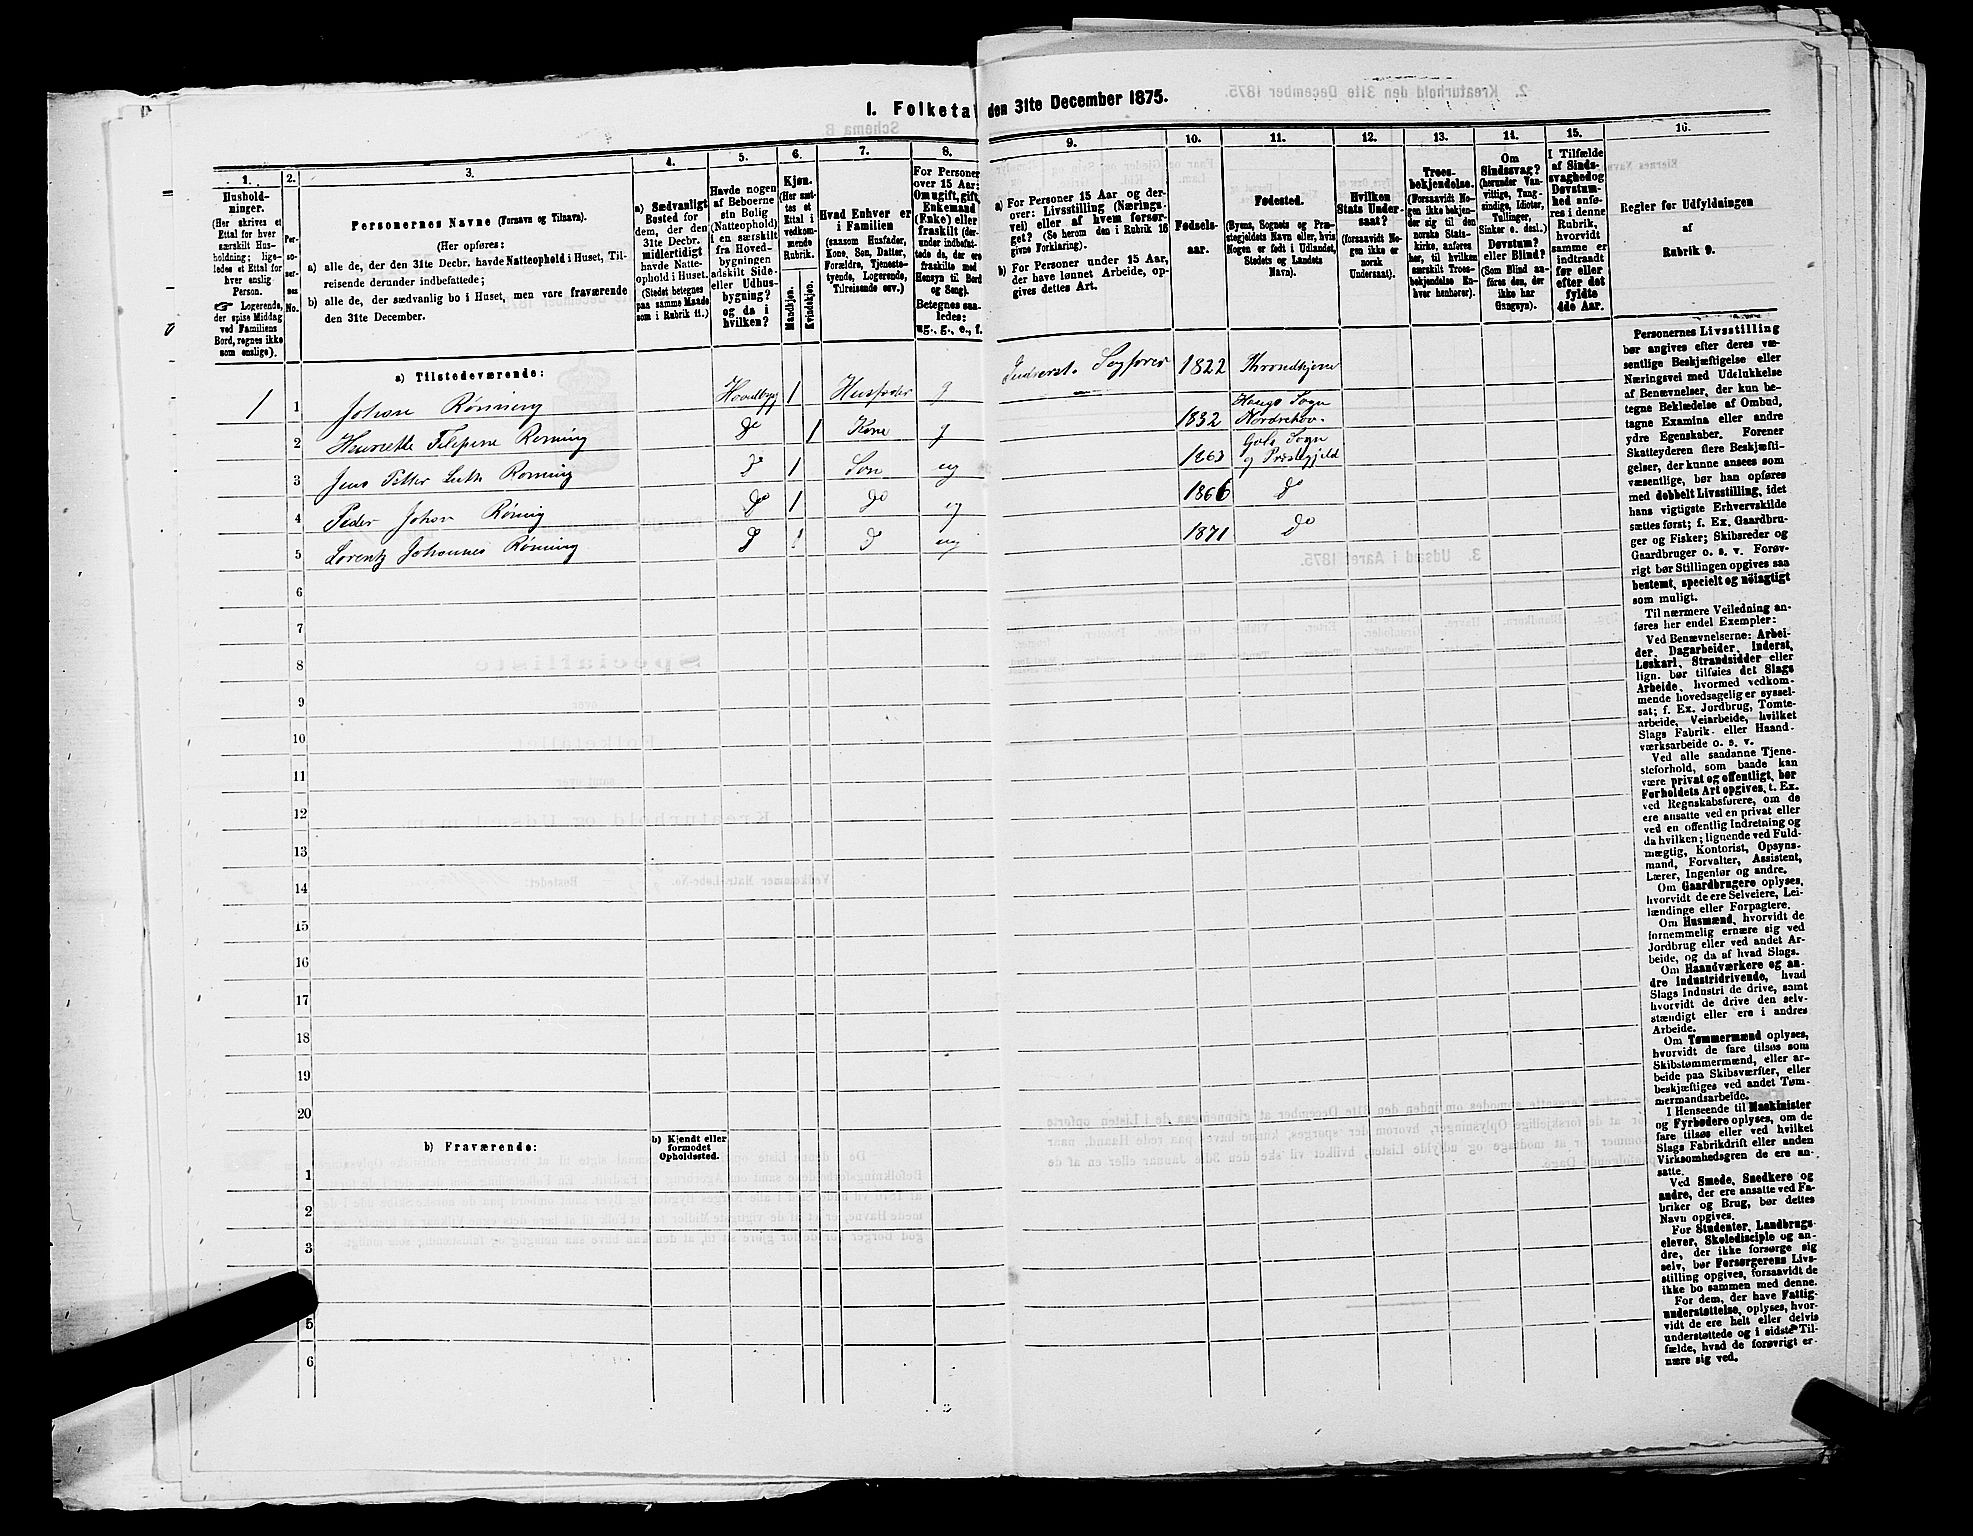 I. Folketæ den 31te December 1875.
1.
Hushold-
ninger.
(Her skrives et
Ettal for hver
særskilt Hus-
holdning; lige-
ledes et Ettal for
hver enslig
Person.
Logerende,
der spise Middag
ved Familiens
Bord, regnes ikke
som enslige).
2.
Per-
soner-
nes
No.
3.
Personernes Navne (Fornavn og Tilnavn).
(Her opføres:
a) alle de, der den 31te Decbr. havde Natteophold i Huset, Til-
reisende derunder indbefattede;
b) alle de, der sædvanlig bo i Huset, men vare fraværende
den 31te December.
4.
a) Sædvanligt
Bosted for
dem, der den
31te Decbr.
midlertidigt
havde Natte-
ophold i Huset.
(Stedet betegnes
paa samme Maade
som i Rubrik 11.)
5.
Havde nogen
af Beboerne
sin Bolig
(Natteophold)
i en særskilt
fra Hoved-
bygningen
adskilt Side-
eller Udhus-
bygning?
og da i
hvilken?
6.
Kjøn.
(Her sæt-
tes et
Ettal i
vedkom-
mende
Rubrik.
Mandkjøn.
Kvindekjøn.
7.
Hvad Enhver er
i Familien
(saasom Husfader,
Kone, Søn, Datter,
Forældre, Tjeneste-
tyende, Logerende,
Tilreisende osv.)
8.
For Personer
over 15 Aar:
Om ugift, gift,
Enkemand
(Enke) eller
fraskilt (der-
under indbefat-
tede de, der ere
fraskilte med
Hensyn til Bord
og Seng).
Betegnes saa-
ledes:
ug., g., e., f.
9.
a) For Personer 15 Aar og der-
over: Livsstilling (Nærings-
vei) eller af hvem forsør-
get? (Se herom den i Rubrik 16
givne Forklaring).
b) For Personer under 15 Aar,
der have lønnet Arbeide, op-
gives dettes Art.
10.
Fødsels-
aar.
11.
Fødested.
(Byens, Sognets og Præ-
stegjeldets Navn eller, hvis
Nogen er født i Udlandet,
Stedets og Landets
Navn).
12.
Hvilken
Stats Under-
saat?
(forsaavidt No-
gen ikke er
norsk
Undersaat).
13.
Troes-
bekjendelse.
(Forsaavidt No-
gen ikke bekjen-
der sig til den
norske Stats-
kirke, anføres
her, til hvilken
særskilt Troes-
bekjendelse En-
hver henhører).
14.
Om
Sindssvag?
(herunder Van-
vittige, Tung-
sindige, Idioter,
Tullinger,
Sinker o. desl.)
Døvstum?
eller Blind?
(Som Blind an-
føres den, der
ikke har
Gangsyn).
15.
I Tilfælde
af Sinds-
svaghed og
Døvstum-
hed anfø-
res i denne
Rubrik,
hvorvidt
samme er
indtraadt
før eller
efter det
fyldte
4de Aar.
16.
Regler for Udfyldningen
af
Rubrik 9.
a) Tilstedeværende:
1 1 Johan Rønning Hovedbyg 1 Husfader g Sagfører 1822 Throndhjem
2 Henriette Filepine Rønning Do 1 Kone g 1832 Haugs Sogn Nordrehov
3 Jens Petter Rønning Do 1 Søn ug 1863 Gols Sogn og Præstegjeld
4 Peder Johan Rønning Do 1 Do ug 1866 Do
5 Lorentz Johannes Rønning D 1 D ug 1871 Do
6
7
8
9
10
11
12
13
14
15
16
17
18
19
20
b) Fraværende:
b) Kjendt eller
formodet
Opholdssted.
1
2
3
5
6
Personernes Livsstilling
bør angives efter deres væ-
sentlige Beskjæftigelse eller
Næringsvei med Udelukkelse
af Benævnelser, der kun be-
tegne Beklædelse af Ombud,
tagne Examina eller andre
ydre Egenskaber. Forener
Skatteyderen flere Beskjæfti-
gelser, der kunne ansees som
væsentlige, bør han opføres
med dobbelt Livsstilling, idet
hans vigtigste Erhvervskilde
sættes først; f. Ex. Gaardbru-
ger og Fisker; Skibsreder og
Gaardbruger o. s. v. Forøv-
rigt bør Stillingen opgives saa
bestemt, specielt og nøiagtigt
som muligt.
Til nærmere Veiledning an-
føres her endel Exempler:
Ved Benævnelserne: Arbei-
der, Dagarbeider, Inderst,
Løskarl, Strandsidder eller
lign. bør tilføies det Slags
Arbeide, hvormed vedkom-
mende hovedsagelig er syssel-
sat; f. Ex. Jordbrug, Tomte-
arbeide, Veiarbeide, hvilket
Slags Fabrik- eller Haand-
værksarbeide o. s. v.
Ved alle saadanne Tjene-
steforhold, som baade kan
være privat og offentligt, bør
Forholdets Art opgives, t. Ex.
ved Regnskabsførere, om de
ere ansatte ved en privat eller
ved en offentlig Indretning og
da hvilken; lignende ved Fuld-
mægtig, Kontorist, Opsyns-
mand, Forvalter, Assistent,
Lærer, Ingeniør og andre.
Om Gaardbrugere oplyses,
hvorvidt de ere Selveiere, Lei-
lændinge eller Forpagtere.
Om Husmænd, hvorvidt de
fornemmelig ernære sig ved
Jordbrug eller ved andet Ar-
beide, og da af hvad Slags.
Om Haandværkere og an-
dre Industridrivende, hvad
Slags Industri de drive, samt
hvorvidt de drive den selv-
stændigt eller ere i andres
Arbeide.
Om Tømmermænd oplyses,
hvorvidt de fare tilsøs som
Skibstømmermænd, eller ar-
beide paa Skibsværfter, eller
beskjæftiges ved andet Tøm-
mermandsarbeide.
I Henseende til Maskinister
og Fyrbødere oplyses, om de
fare tilsøs eller ved hvilket
Slags Fabrikdrift eller anden
Virksomhedsgren de ere an-
satte.
Ved Smede, Snedkere og
andre, der ere ansatte ved Fa-
briker og Brug, bør dettes
Navn opgives.
For Studenter, Landbrugs-
elever, Skoledisciple og an-
dre, der ikke forsørge sig
selv, bør Forsørgerens Livs-
stilling opgives, forsaavidt de
ikke bo sammen med denne.
For dem, der have Fattig-
understøttelse, oplyses, hvor-
vidt de ere helt eller delvis
understøttede og i sidste Til-
fælde, hvad de forøvrigt er-
nære sig ved.